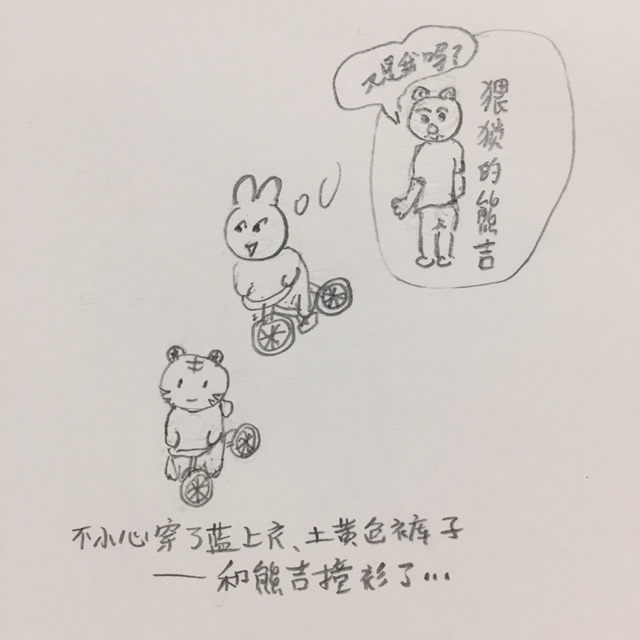 又是我吗？
猥琐的熊吉
不小心穿了蓝上衣、土黄色裤子
——和熊吉撞衫了…